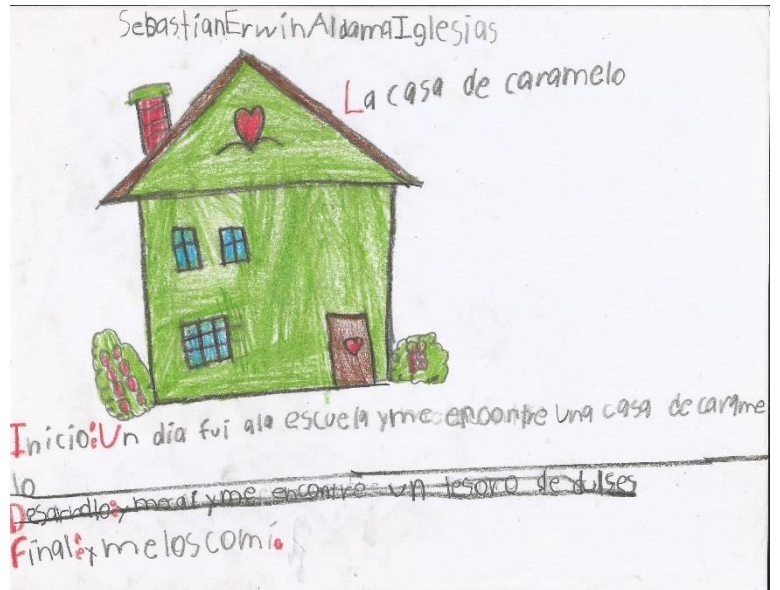 SebastianErwinAldamaIglesias
La casa de caramelo
Inicio:Un día fui ala escuela yme encontre una casa de carame
lo
Desarrollo:y me caí yme encontre un tesoro de dulses
Final:y meloscomí.